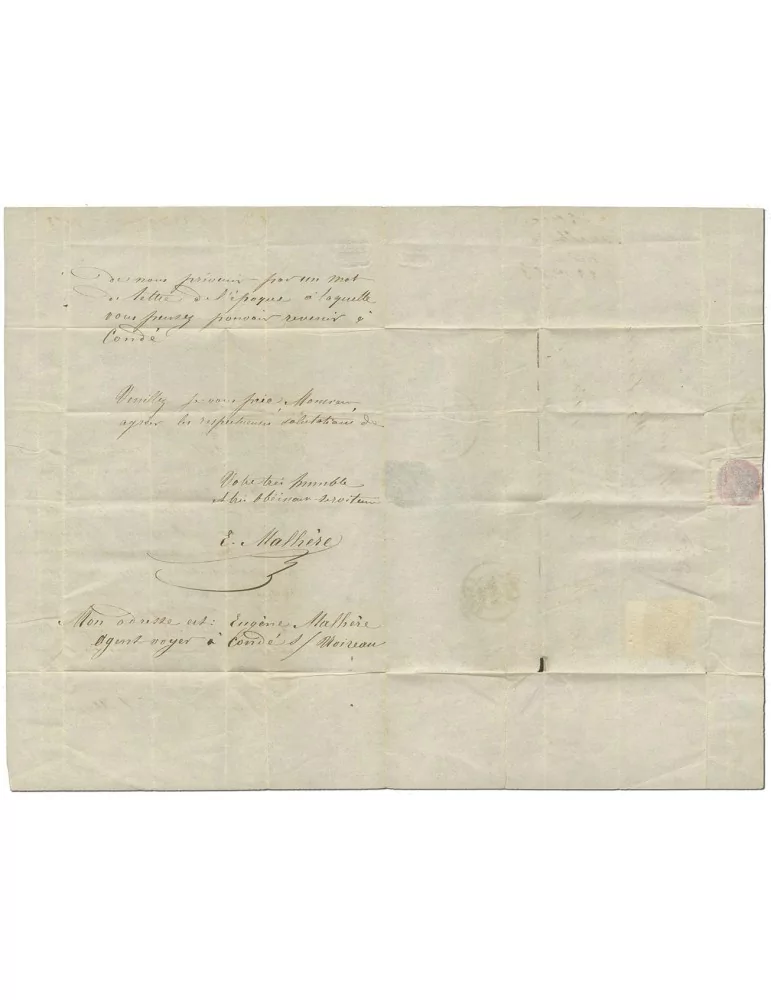 de nous prévenir par un mot
de lettre de l'époque à laquelle
vous pensez pouvoir revenir à
Condé
Veuillez je vous prie Monsieur
agréer les respectueuses salutations de
Votre très humble
& très obéissant serviteur
E. Malhère
Mon adresse est: Eugène Malhère
Agent voyer à Condé s/ Noireau